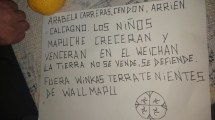 ARRABELA CARRERAS, CENDON, ARRIEN
CALCAGNO. LOS NIÑOS
MAPUCHE CRECERAN Y
VENCERAN EN EL WEICHAN
LA TIERRA NO SE VENDE, SE DEFIENDE.
FUERA WINKAS TERRATENIENTES
DE WALLMAPU